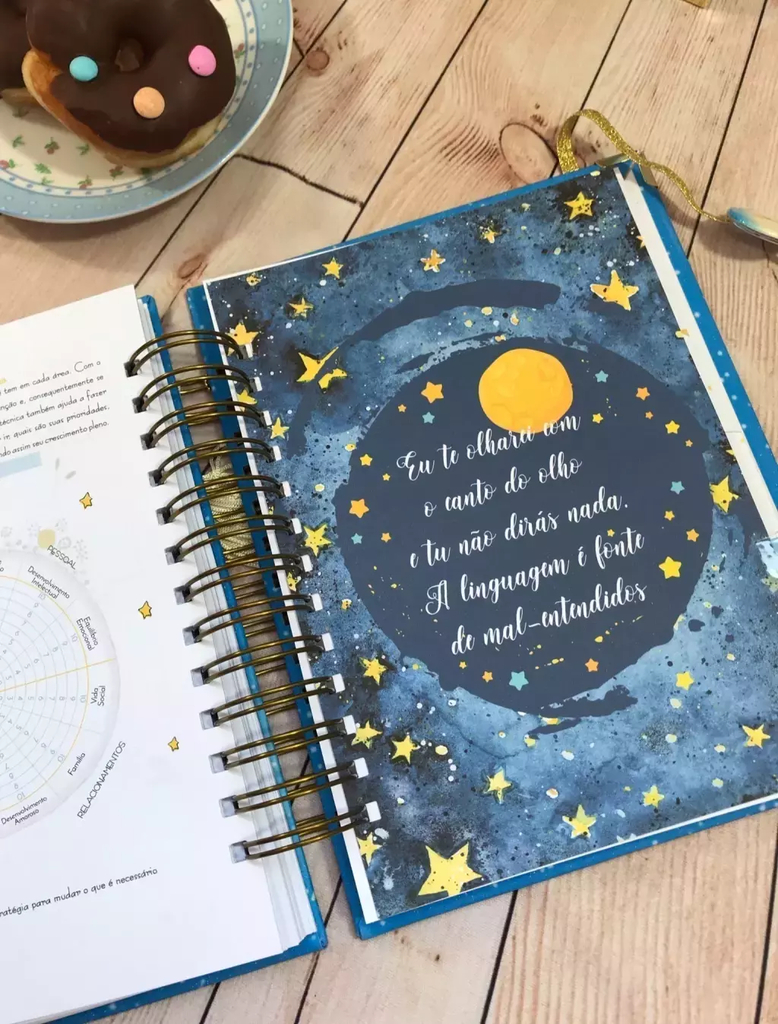 tem em cada área. Com a
e, consequentemente se
técnica também ajuda a fazer
quais são suas prioridades,
assim seu crescimento pleno.
PESSOAL
Desenvolvimento
Intelectual
Equilíbrio
Emocional
Vida
Social
Família
Desenvolvimento
Amoroso
RELACIONAMENTOS
para mudar o que é necessário
Eu te olharei com
o canto do olho
e tu não dirás nada.
A linguagem é fonte
de mal-entendidos